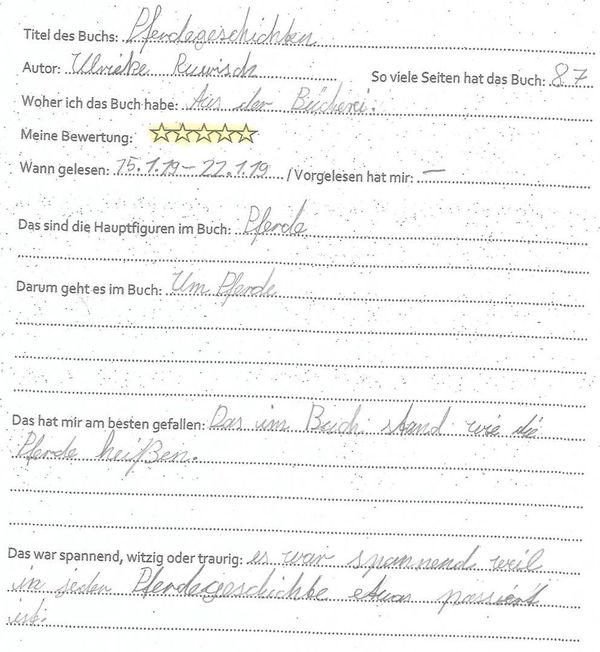 Titel des Buchs: Pferdegeschichten
Autor: Ulrieke Ruwisch So viele Seiten hat das Buch: 87
Woher ich das Buch habe: Aus der Bücherei.
Meine Bewertung: ☆☆☆☆☆
Wann gelesen: 15.1.19 – 22.1.19 / Vorgelesen hat mir: –
Das sind die Hauptfiguren im Buch: Pferde
Darum geht es im Buch: Um Pferde
Das hat mir am besten gefallen: Das im Buch stand wie die
Pferde heißen.
Das war spannend, witzig oder traurig: es war spannend weil
in jeder Pferdegeschichte etwas passiert
ist.